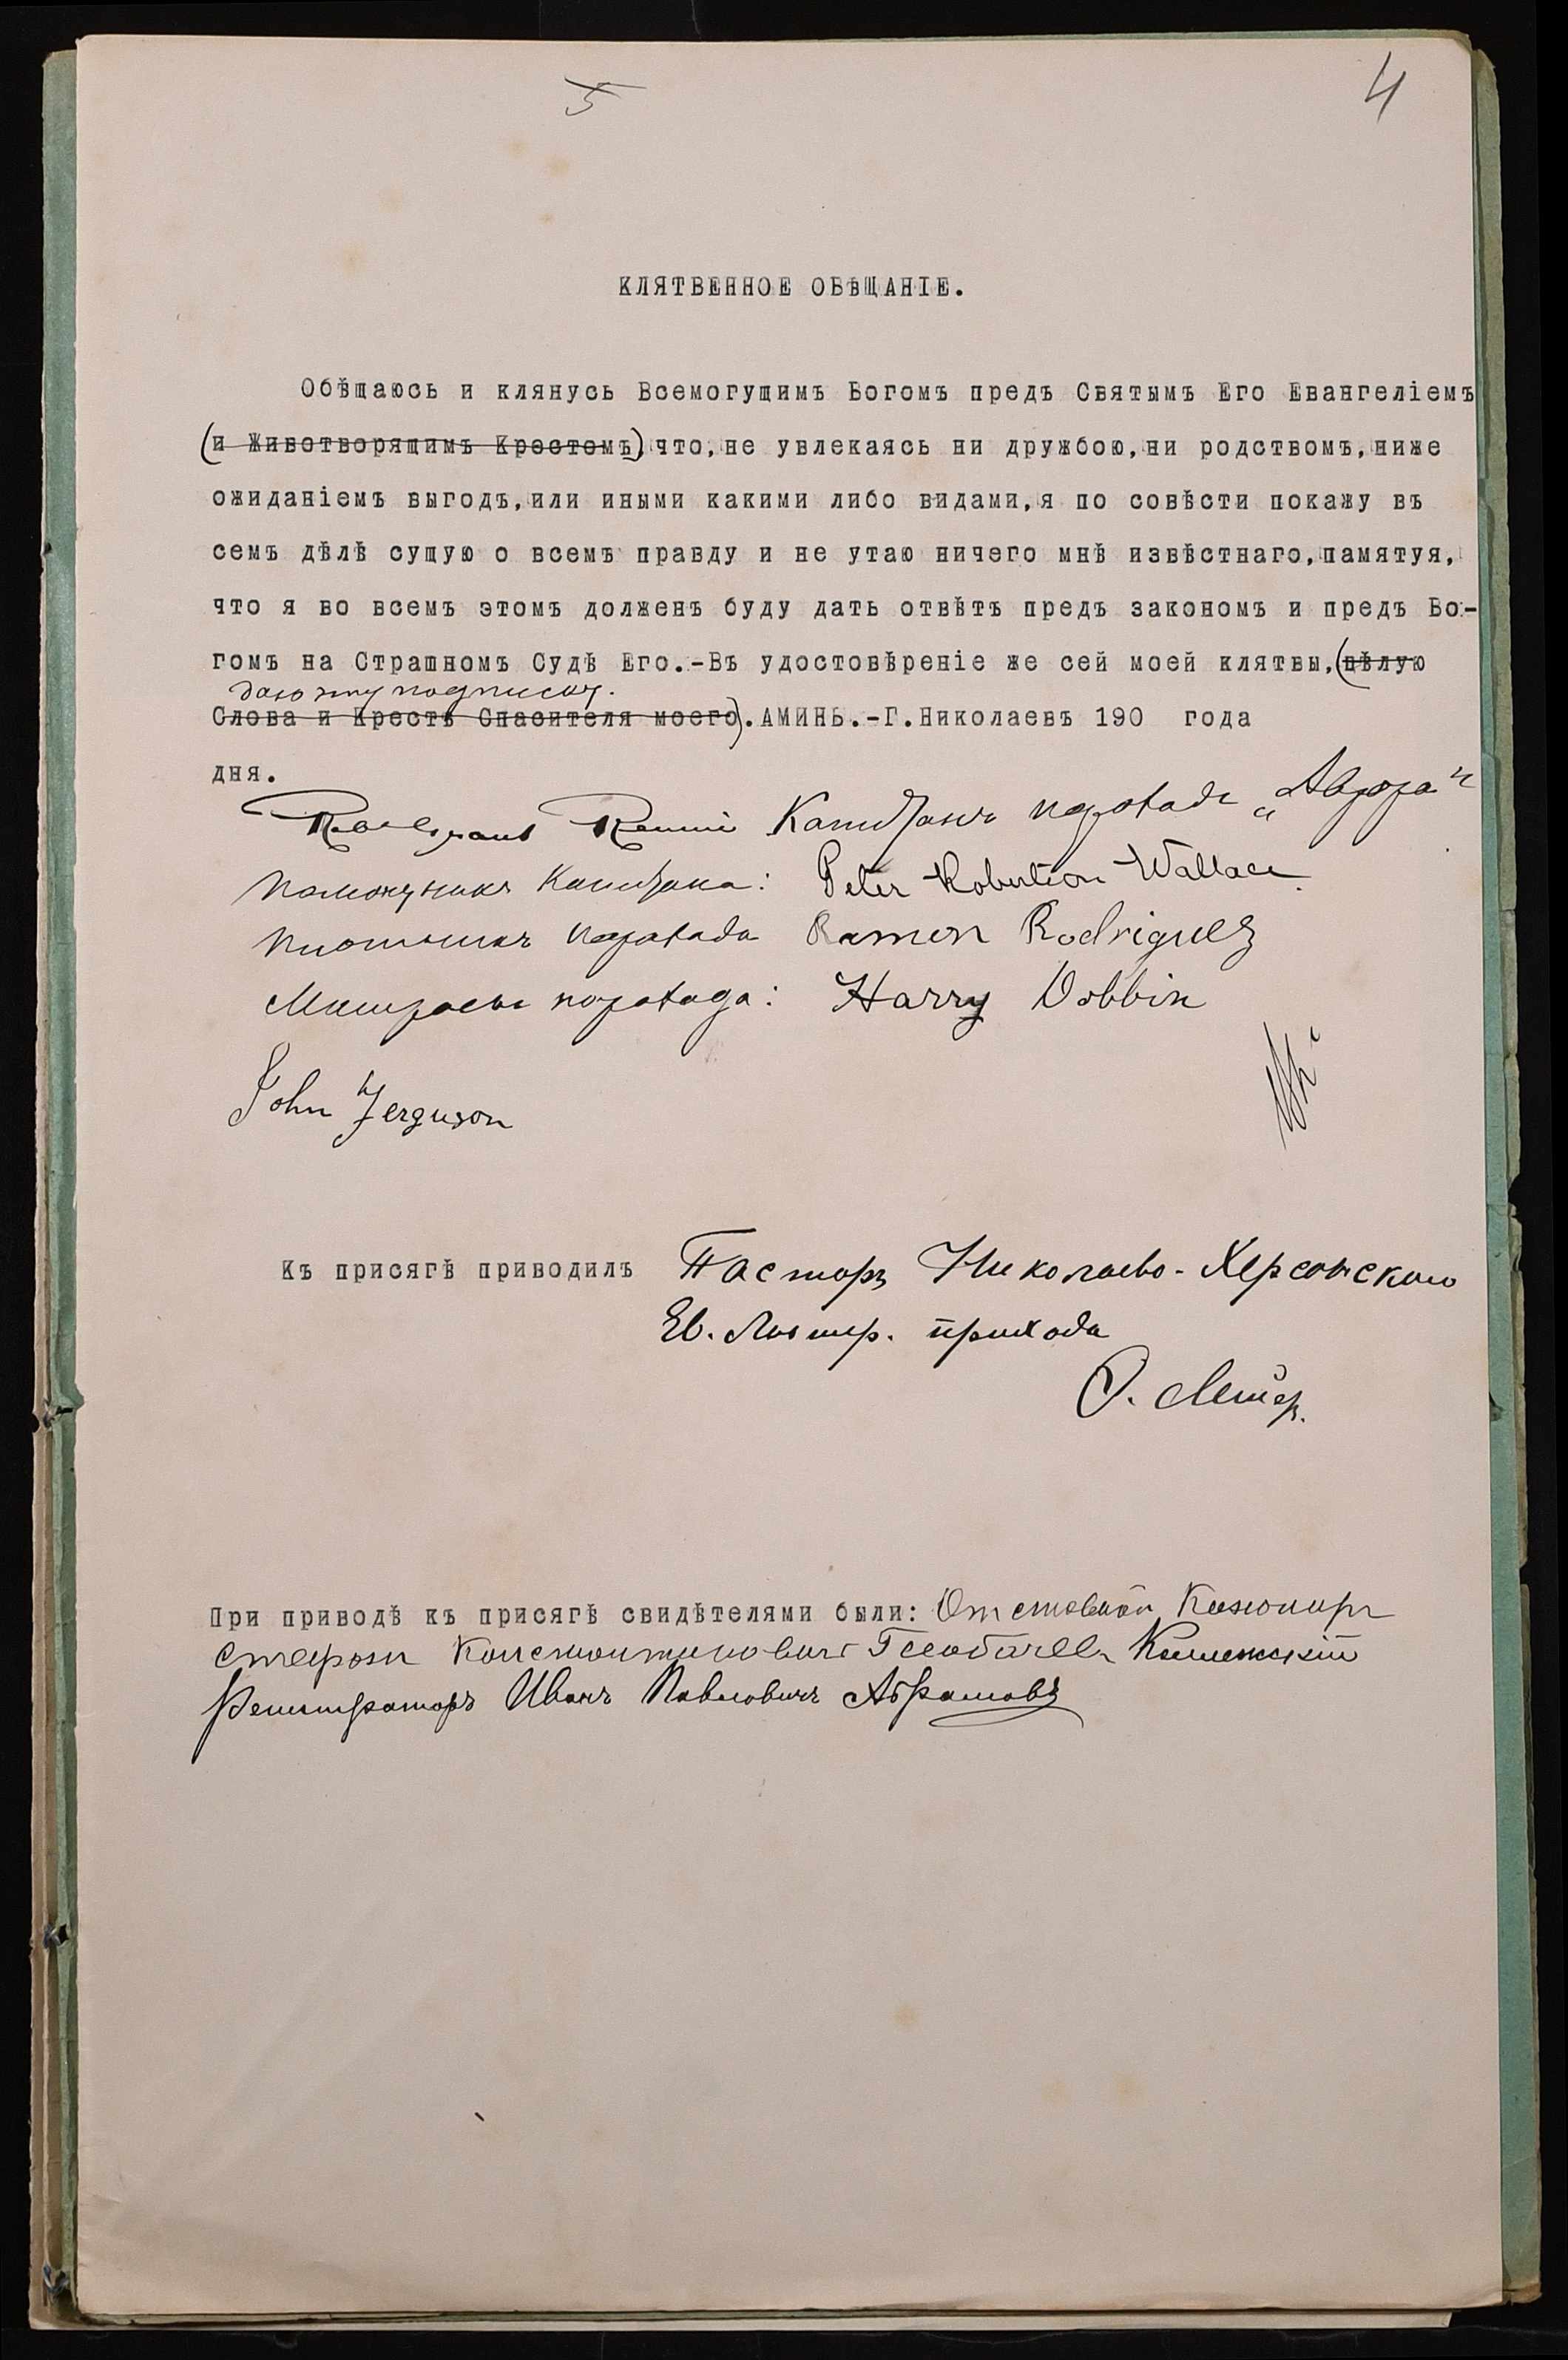 5
4
КЛЯТВЕННОЕ ОБѢЩАНІЕ.
Обѣщаюсь и клянусь Всемогущимъ Богомъ предъ Святымъ Его Евангеліемъ
(и Животворящимъ Крестомъ) что, не увлекаясь ни дружбою, ни родствомъ, ниже
ожиданіемъ выгодъ, или иными какими либо видами, я по совѣсти покажу въ
семъ дѣлѣ сущую о всемъ правду и не утаю ничего мнѣ извѣстнаго, памятуя,
что я во всемъ этомъ долженъ буду дать отвѣтъ предъ закономъ и предъ Бо-
гомъ на Страшномъ Судѣ Его.-Въ удостовѣреніе же сей моей клятвы, (цѣлую
даю эту подписку.
Слова и Крестъ Спасителя моего). АМИНЬ.-Г. Николаевъ 190 года
дня.
Rennie Капитанъ парохода „Аврора"
Помощникъ Капитана: Peter Robertson Wallace
Плотникъ парохода Ramon Rodriguez
Матросы парохода: Harry Dobbin
John Ferguson
Къ присягѣ приводилъ Пасторъ Николаево-Херсонскаго
Ев. Лютер. прихода
При приводѣ къ присягѣ свидѣтелями были: Отставной Канониръ
Константиновичъ Коллежскій
Регистраторъ Иванъ Павловичъ Абрамовъ